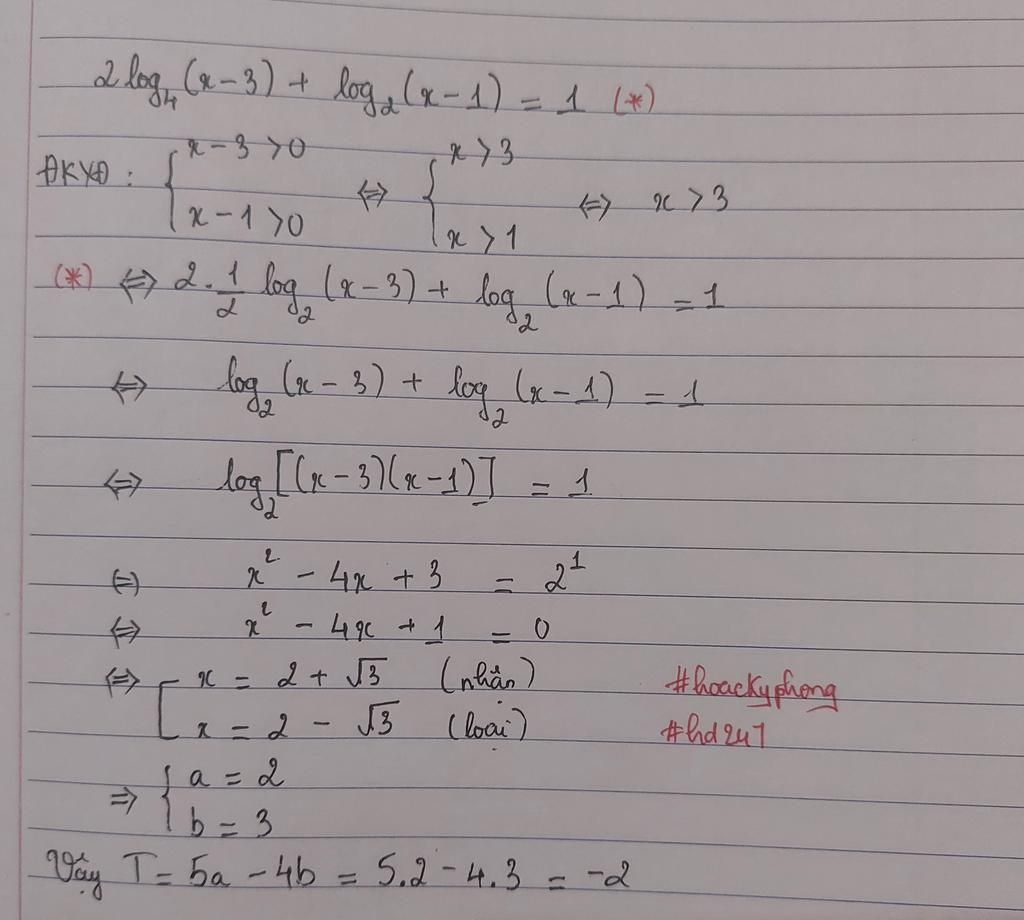 2log₄(x-3) + log₂(x-1) = 1 (*)
ĐKXĐ: { x-3 >0 ; x-1 >0 ⇔ { x >3 ; x >1 ⇔ x >3
(*) ⇔ 2.1/2 log₂ (x-3) + log₂ (x-1) = 1
⇔ log₂ (x-3) + log₂ (x-1) = 1
⇔ log₂ [(x-3)(x-1)] = 1
⇔ x² - 4x + 3 = 2¹
⇔ x² - 4x + 1 = 0
⇔ [ x = 2 + √3 (nhận)
x = 2 - √3 (loại)
#hoackyphong
#hd247
⇒ { a = 2
b = 3
Vậy T = 5a - 4b = 5.2 - 4.3 = -2